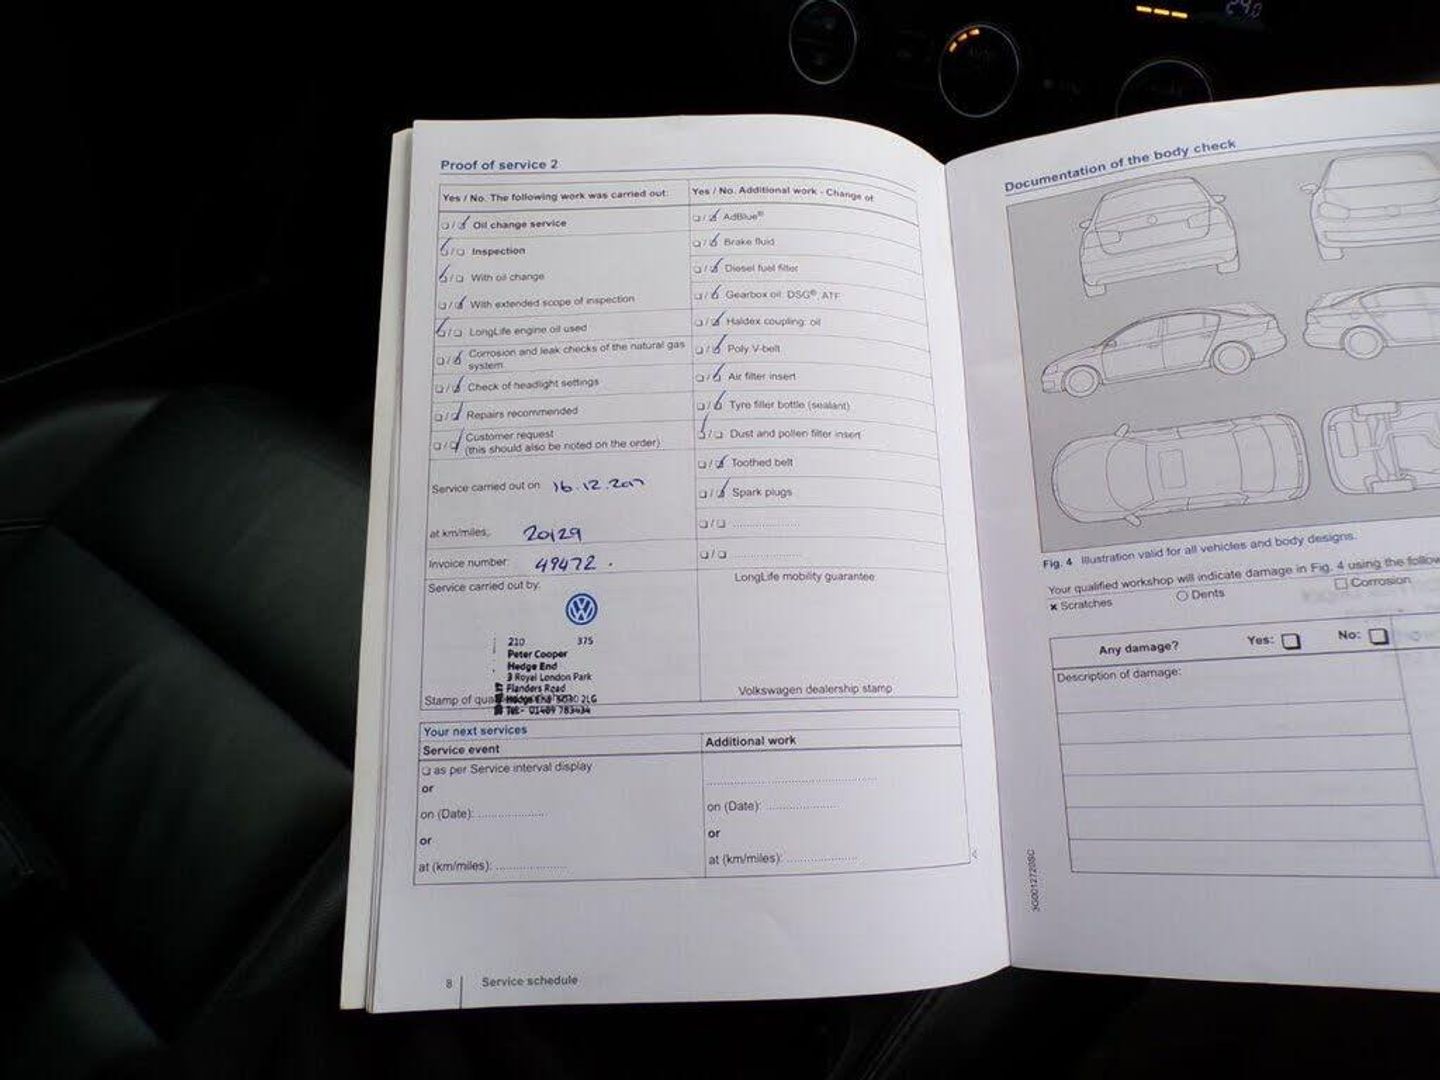 Proof of service 2
Yes / No. The following work was carried out:
☐ / ☑ Oil change service
☑ / ☐ Inspection
☑ / ☐ With oil change
☐ / ☑ With extended scope of inspection
☑ / ☐ LongLife engine oil used
☐ / ☑ Corrosion and leak checks of the natural gas
system
☐ / ☑ Check of headlight settings
☐ / ☑ Repairs recommended
☐ / ☑ Customer request
(this should also be noted on the order)
Service carried out on 16.12.2017
at km/miles: 20129
Invoice number: 49472.
Service carried out by:
210 375
Peter Cooper
Hedge End
3 Royal London Park
Flanders Road
Hedge End SO30 2LG
Tel:- 01489 783434
Stamp of
Yes / No. Additional work - Change of
☐ / ☑ AdBlue®
☐ / ☑ Brake fluid
☐ / ☑ Diesel fuel filter
☐ / ☑ Gearbox oil: DSG®, ATF
☐ / ☑ Haldex coupling: oil
☐ / ☑ Poly V-belt
☐ / ☑ Air filter insert
☐ / ☑ Tyre filler bottle (sealant)
☑ / ☐ Dust and pollen filter insert
☐ / ☑ Toothed belt
☐ / ☑ Spark plugs
☐ / ☐ ....................
☐ / ☐ ....................
LongLife mobility guarantee
Volkswagen dealership stamp
Your next services
Service event
☐ as per Service interval display
or
on (Date): ....................
or
at (km/miles): ....................
Additional work
on (Date): ....................
or
at (km/miles): ....................
8 Service schedule
Documentation of the body check
Fig. 4 Illustration valid for all vehicles and body designs.
Your qualified workshop will indicate damage in Fig. 4 using the
× Scratches ○ Dents ☐ Corrosion
Any damage? Yes: ☐ No: ☐
Description of damage:
3G0012720SC